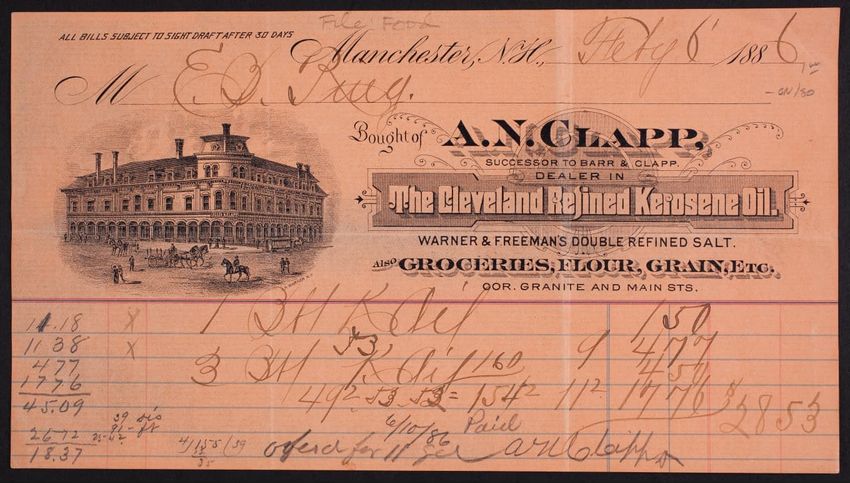 File Food
ALL BILLS SUBJECT TO SIGHT DRAFT AFTER 30 DAYS
Manchester, N.H., Feby 6 1886,
M E.
Bought of A. N. CLAPP,
SUCCESSOR TO BARR & CLAPP.
DEALER IN
The Cleveland Refined Kerosene Oil.
WARNER & FREEMAN'S DOUBLE REFINED SALT.
ALSO GROCERIES, FLOUR, GRAIN, ETC.
COR. GRANITE AND MAIN STS.
11.18 X 1 Bbl K Oil 1 50
1138 X 53 9 4 77
477 3 Bbl K Oil 160 4 50
1776 49² 53 53 = 154² 11² 17 76 $
45.09 28 53
39
26.72 6/10/86 Paid
18.37 4/155/39 for 11 A N Clapp
35